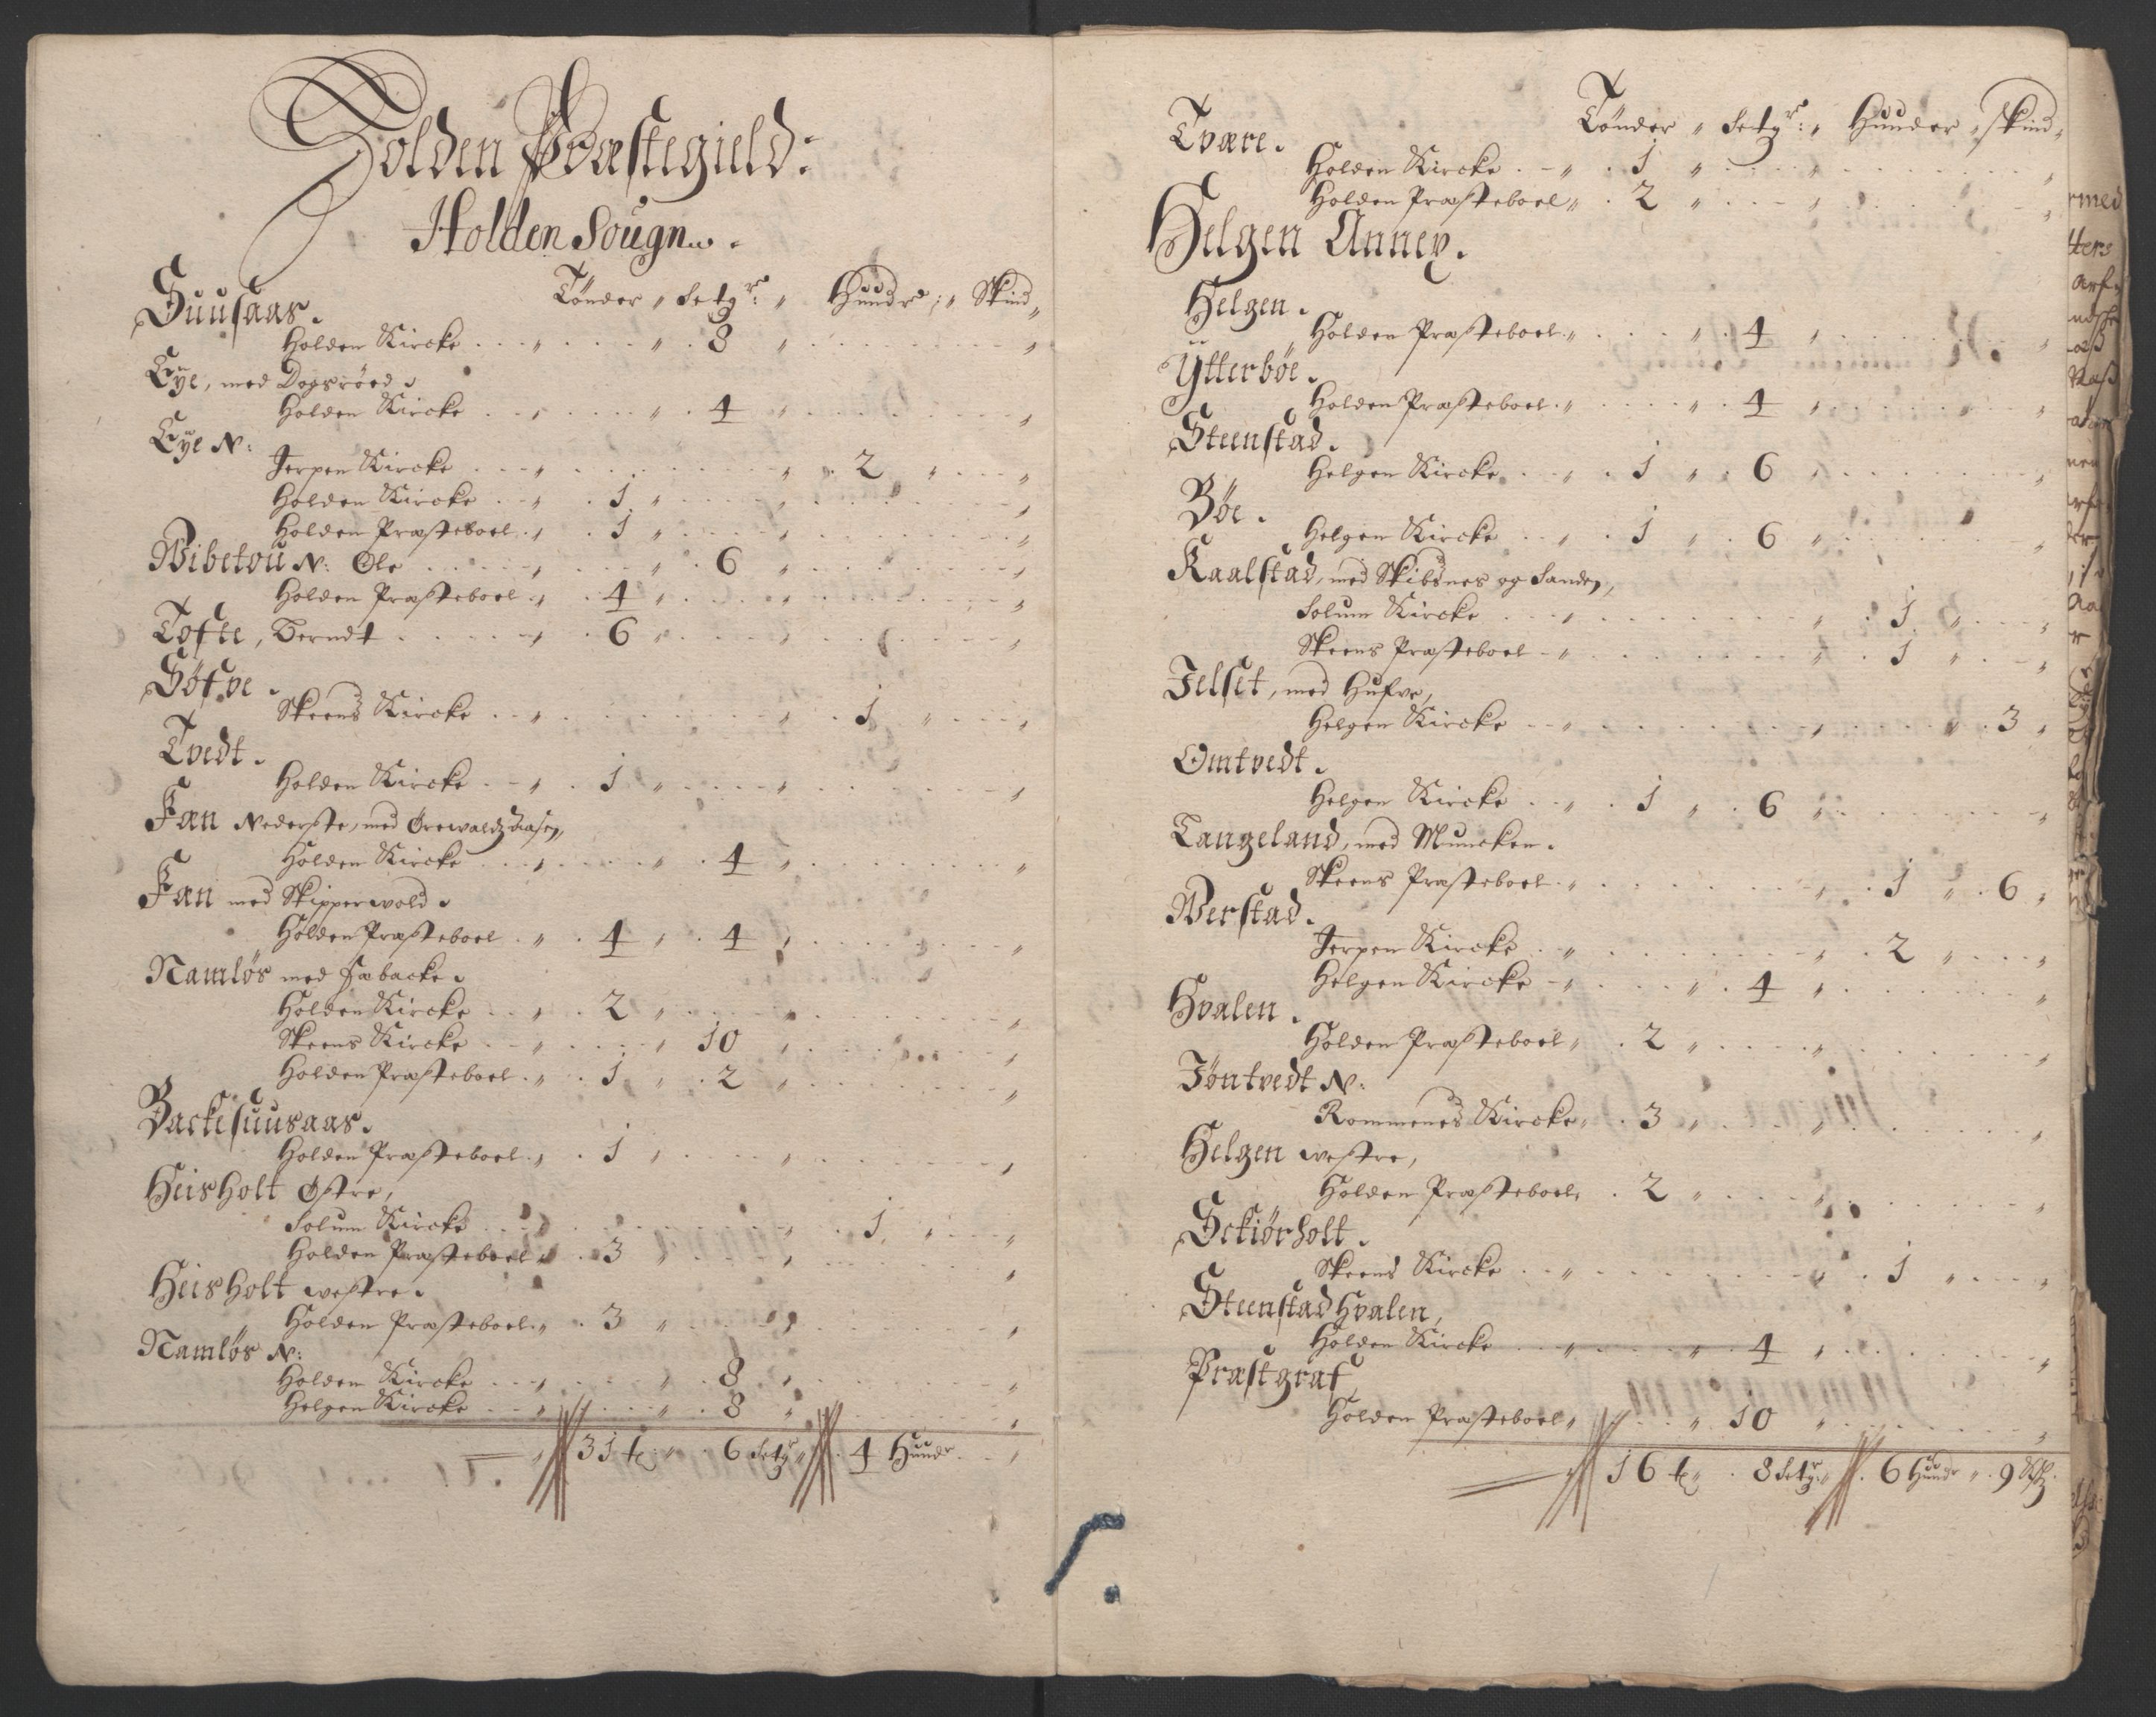 Holden Præstegield:
Holden Sougn.
Tønder " Setgr: " Hunder " Skind "
Suusaas.
Holden Kircke . . " . . . . " . 8 "
Eye, med Dogsröed.
Holden Kircke . . " . . . . " . 4 "
Eye N:
Jerpen Kircke . . " . . . . " . 2 "
Holden Kircke . . " . 1 "
Holden Præsteboel . " . 1 "
Wibetou N: Ole . . . . " . 6 "
Holden Præsteboel . " . 4 "
Tofte, Berndt . . . . " . 6 "
Söfve.
Skeens Kircke . . " . . . . " . 1 "
Tvedt.
Holden Kircke . . " . 1 "
Fæn Nederste, med
Holden Kircke . . " . . . . " . 4 "
Fæn med Skipperwold.
Holden Præsteboel . " . 4 " . 4 "
Namlös med Fæbacke.
Holden Kircke . . " . 2 "
Skeens Kircke . . " . . . . " 10 "
Holden Præsteboel . " . 1 " . 2 "
Backesuusaas.
Holden Præsteboel . " . 1 "
Heisholt Østre,
Solum Kircke . . . . . . " . 1 "
Holden Præsteboel . 3 "
Heisholt westre.
Holden Præsteboel . " . 3 "
Namlös N:
Holden Kircke . . " . . . . " . 8 "
Helgen Kircke . . " . . . . " . 8 "
31 t " . 6 Setgr " . 4 Hundr
Tvære.
Tønder " Setgr: " Hunder " Skind "
Holden Kircke . . " . 1 "
Holden Præsteboel " . 2 "
Helgen Annex.
Helgen.
Holden Præsteboel . " . . . . " . 4 "
Ytterböe.
Holden Præsteboel . " . . . . " . 4 "
Steenstad.
Helgen Kircke . . " . 1 " . 6 "
Böe.
Helgen Kircke . . " . 1 " . 6 "
Kaalstad, med Skibsnes og Sanden,
Solum Kircke . . . " . . . . " . 1 "
Skeens Præsteboel . " . . . . " . 1 "
Jelset, med Hufve,
Helgen Kircke . . " . . . . " . 3 "
Omtvedt.
Helgen Kircke . . " . 1 " . 6 "
Tangeland, med Muncken.
Skeens Præsteboel . " . . . . " . 1 " . 6 "
Werstad.
Jerpen Kircke . . " . . . . " . 2 "
Helgen Kircke . " . . . . " . 4 "
Hvalen.
Holden Præsteboel " . 2 "
Jöntvedt N:
Rommenes Kircke " . 3 "
Helgen westre,
Holden Præsteboel, . 2 "
Sckiörholt.
Skeens Kircke . . " . . . . " . 1 "
Steenstad Hvalen,
Holden Kircke . . " . . . . " . 4 "
Præstgraf,
Holden Præsteboel " . . . . " . 10 "
16 t " . 8 Setgr: " . 6 Hundr " . 9 Sk